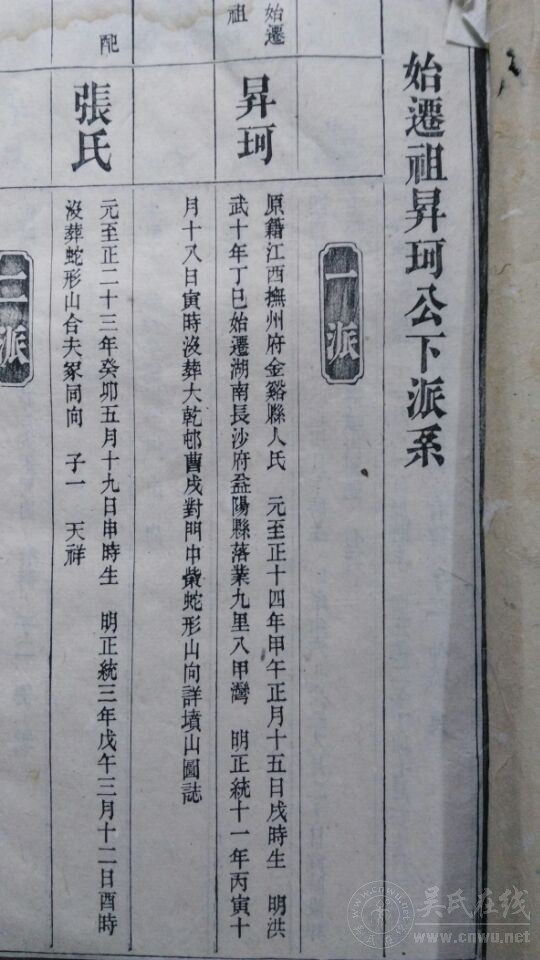 始遷祖昇珂公下派系
一派
始遷祖
昇珂
原籍江西撫州府金谿縣人氏　元至正十四年甲午正月十五日戌時生　明洪
武十年丁巳始遷湖南長沙府益陽縣落業九里八甲灣　明正統十一年丙寅十
月十八日寅時沒葬大乾邨曹戌對門中螢蛇形山向詳墳山圖誌
配
張氏
元至正二十三年癸卯五月十九日申時生　明正統三年戊午三月十二日酉時
沒葬蛇形山合夫冢同向　子一　天祥
二派
吴氏在线
www.cnwu.net